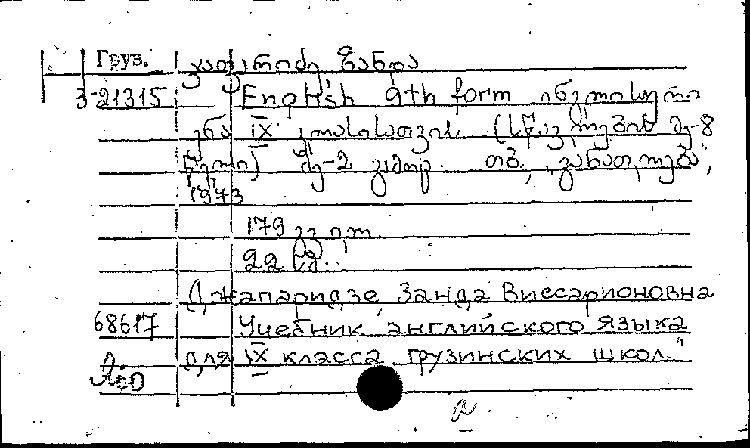 Груз. ჯაფარიძე ზანდა
3-21315 English 9th form ინგლისური
ენა IX კლასისათვის. (სწავლების მე-8
წელი) მე-2 გამოც. თბ., „განათლება",
1973
179 გვ.
22 კ.
Джапаридзе, Занда Виссарионовна
68617 Учебник английского языка
для IX класса грузинских школ."